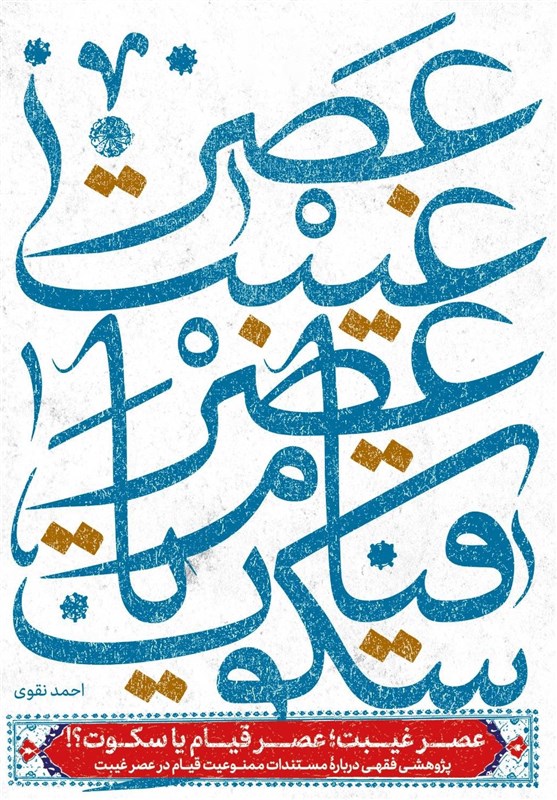 عصر
غیبت
عصر
قیام یا
سکوت
احمد نقوی
عصر غیبت؛ عصر قیام یا سکوت؟!
پژوهشی فقهی دربارۀ مستندات ممنوعیت قیام در عصر غیبت